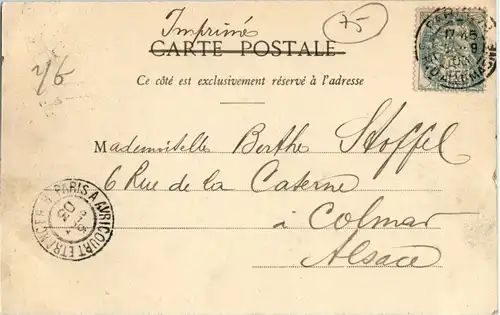 Imprimés
75
CARTE POSTALE
Ce côté est exclusivement réservé à l'adresse
Mademoiselle Berthe Stoffel
6 Rue de la Caserne
à Colmar
Alsace
PARIS A AVRICOURT ETRANGER
03